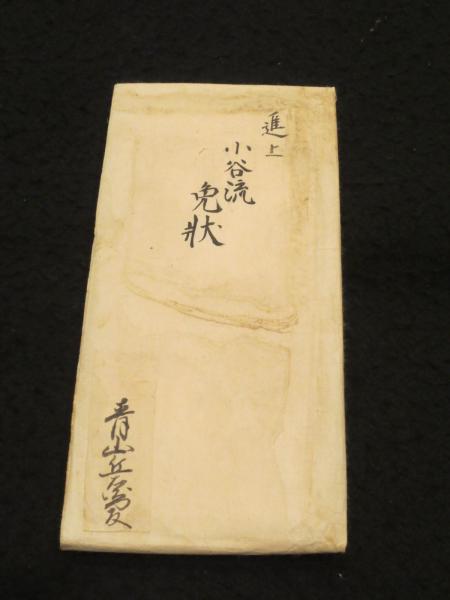 進上
小谷流
免状
青山丘